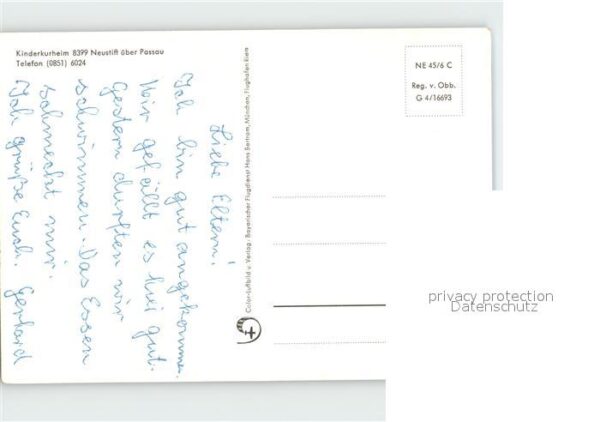 Kinderkurheim 8399 Neustift über Passau
Telefon (0851) 6024
Liebe Eltern!
Ich bin gut angekommen.
Mir gefällt es hier gut.
Gestern durften wir
schwimmen. Das Essen
schmeckt mir.
Ich grüße Euch. Gerhard
Color-Luftbild u. Verlag: Bayerischer Flugdienst Hans Bertram, München, Flughafen Riem
NE 45/6 C
Reg. v. Obb.
G 4/16693
privacy protection
Datenschutz